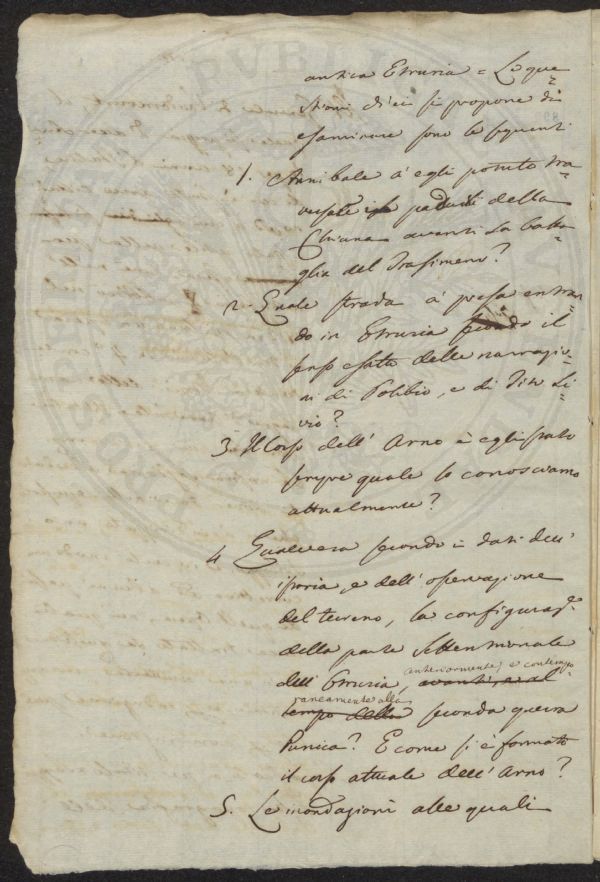 antica Etruria = Le que=
stioni ch'ei si propone di
esaminare sono le seguenti
1. Annibale à egli potuto tra=
versare i paduli della
Chiana avanti la batta=
glia del Trasimeno?
2. Quale strada à presa entran=
do in Etruria secondo il
senso esatto delle narrazio=
ni di Polibio, e di Tito Li=
vio?
3. Il Corso dell' Arno è egli stato
sempre quale lo conosciamo
attualmente?
4 Qual'era secondo i dati dell'
istoria, e dell' osservazione
del terreno, la configuraz.e
della parte Settentrionale
dell' Etruria, avanti, e al
anteriormente, e contempo=
raneamente alla
tempo della seconda guerra
Punica? E come si è formato
il corso attuale dell' Arno?
5. Le inondazioni alle quali